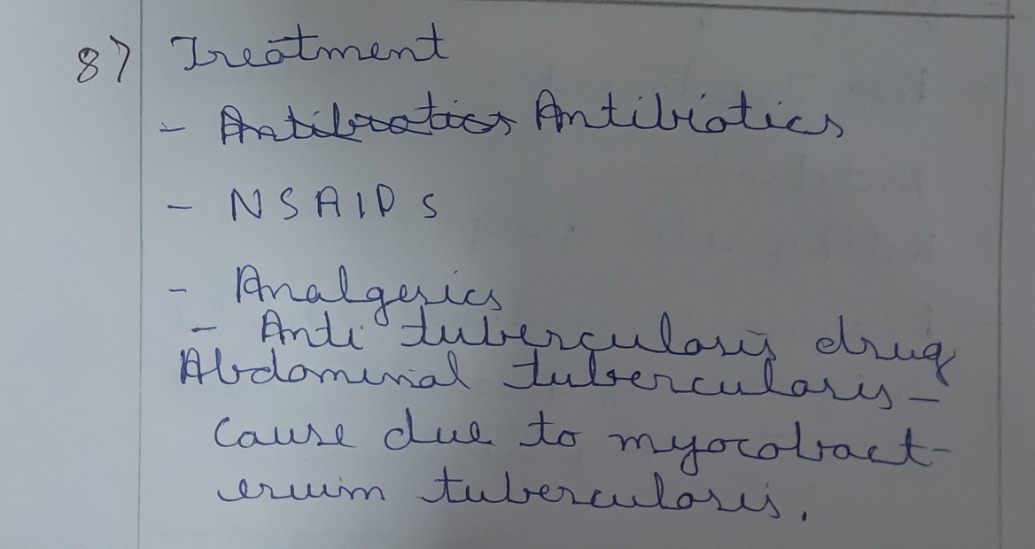 8) Treatment
- Antibiotics Antibiotics
- NSAIDs
- Analgesics
- Anti tuberculosis drug
Abdominal tubercularsis -
cause due to myocobact-
eruim tubercularsis.